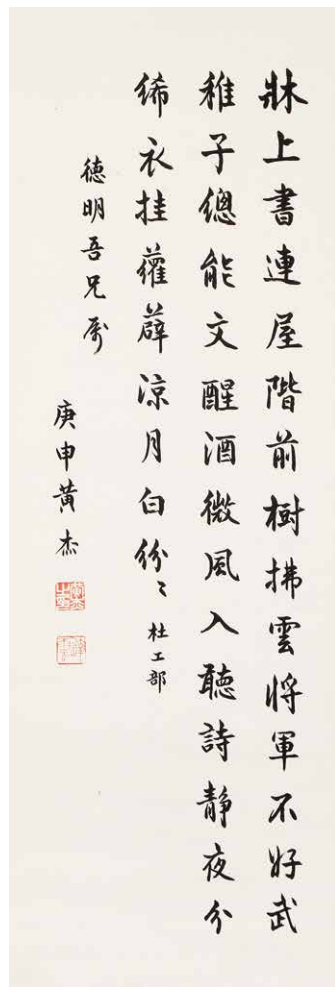 牀上書連屋階前樹拂雲將軍不好武
稚子總能文醒酒微風入聽詩靜夜分
絺衣挂蘿薜涼月白紛〻 杜工部
徳明吾兄属
庚申黃杰